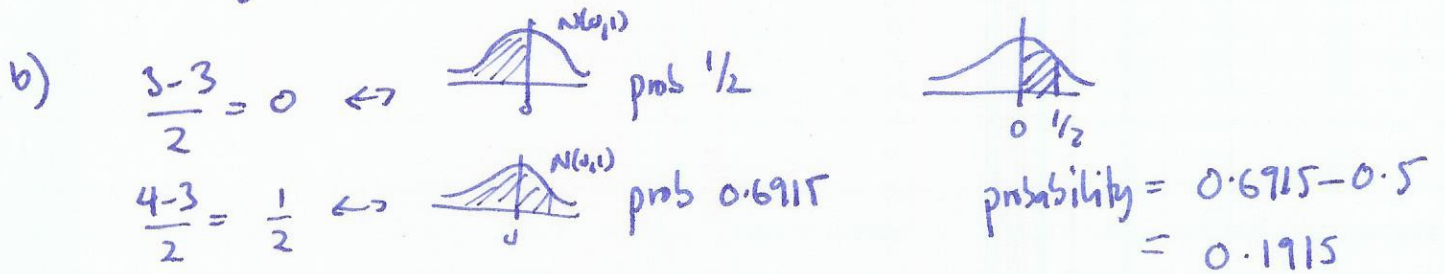 b) 3-3/2 = 0 ↔ N(0,1) 0 prob 1/2
4-3/2 = 1/2 ↔ N(0,1) 0 prob 0.6915
0 1/2
probability = 0.6915-0.5
= 0.1915